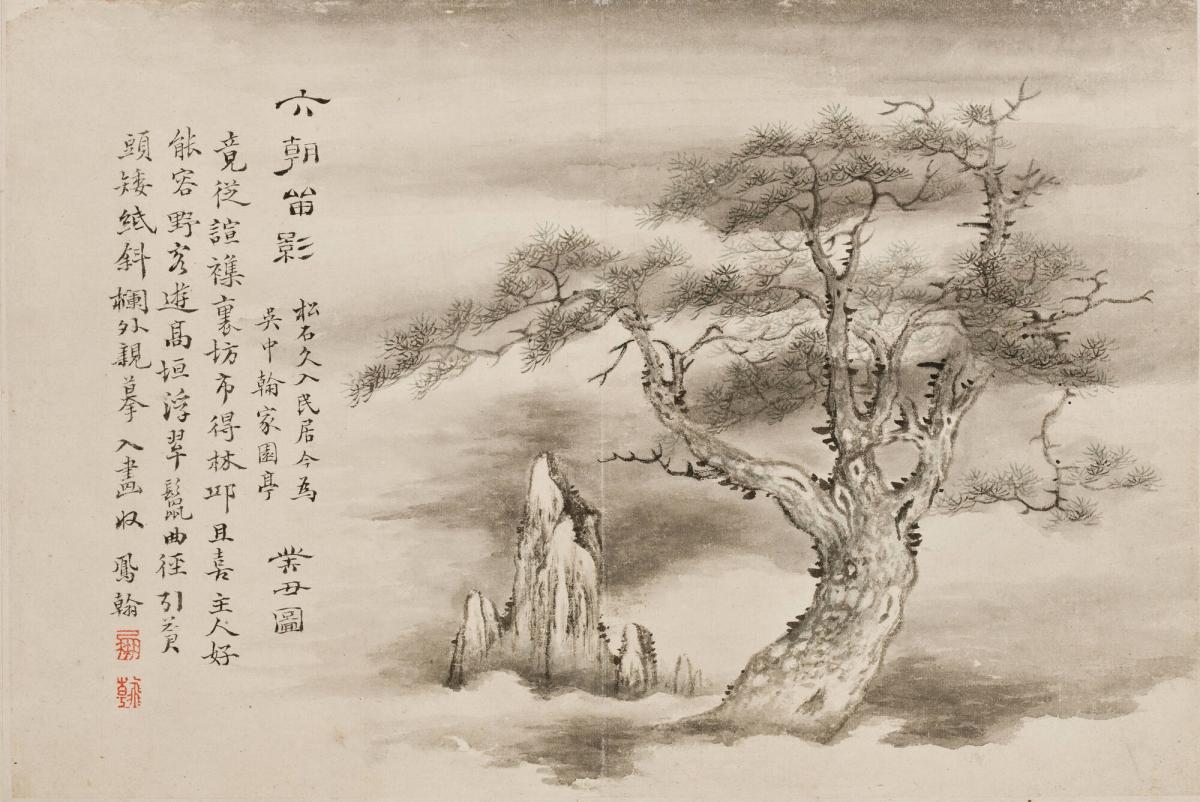 六朝畱影
松石久入民居今為
吳中翰家園亭
圖
竟從諠襍裏坊市得林邱且喜主人好
能容野客遊高垣浮翠鬣曲徑引
頭矮紙斜欄外親摹入畫收 鳳翰
翰